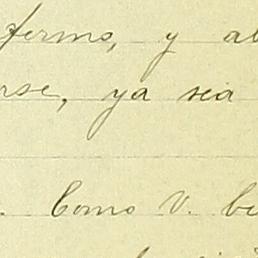 fermo, y al
rse, ya sea
. Como V. bi